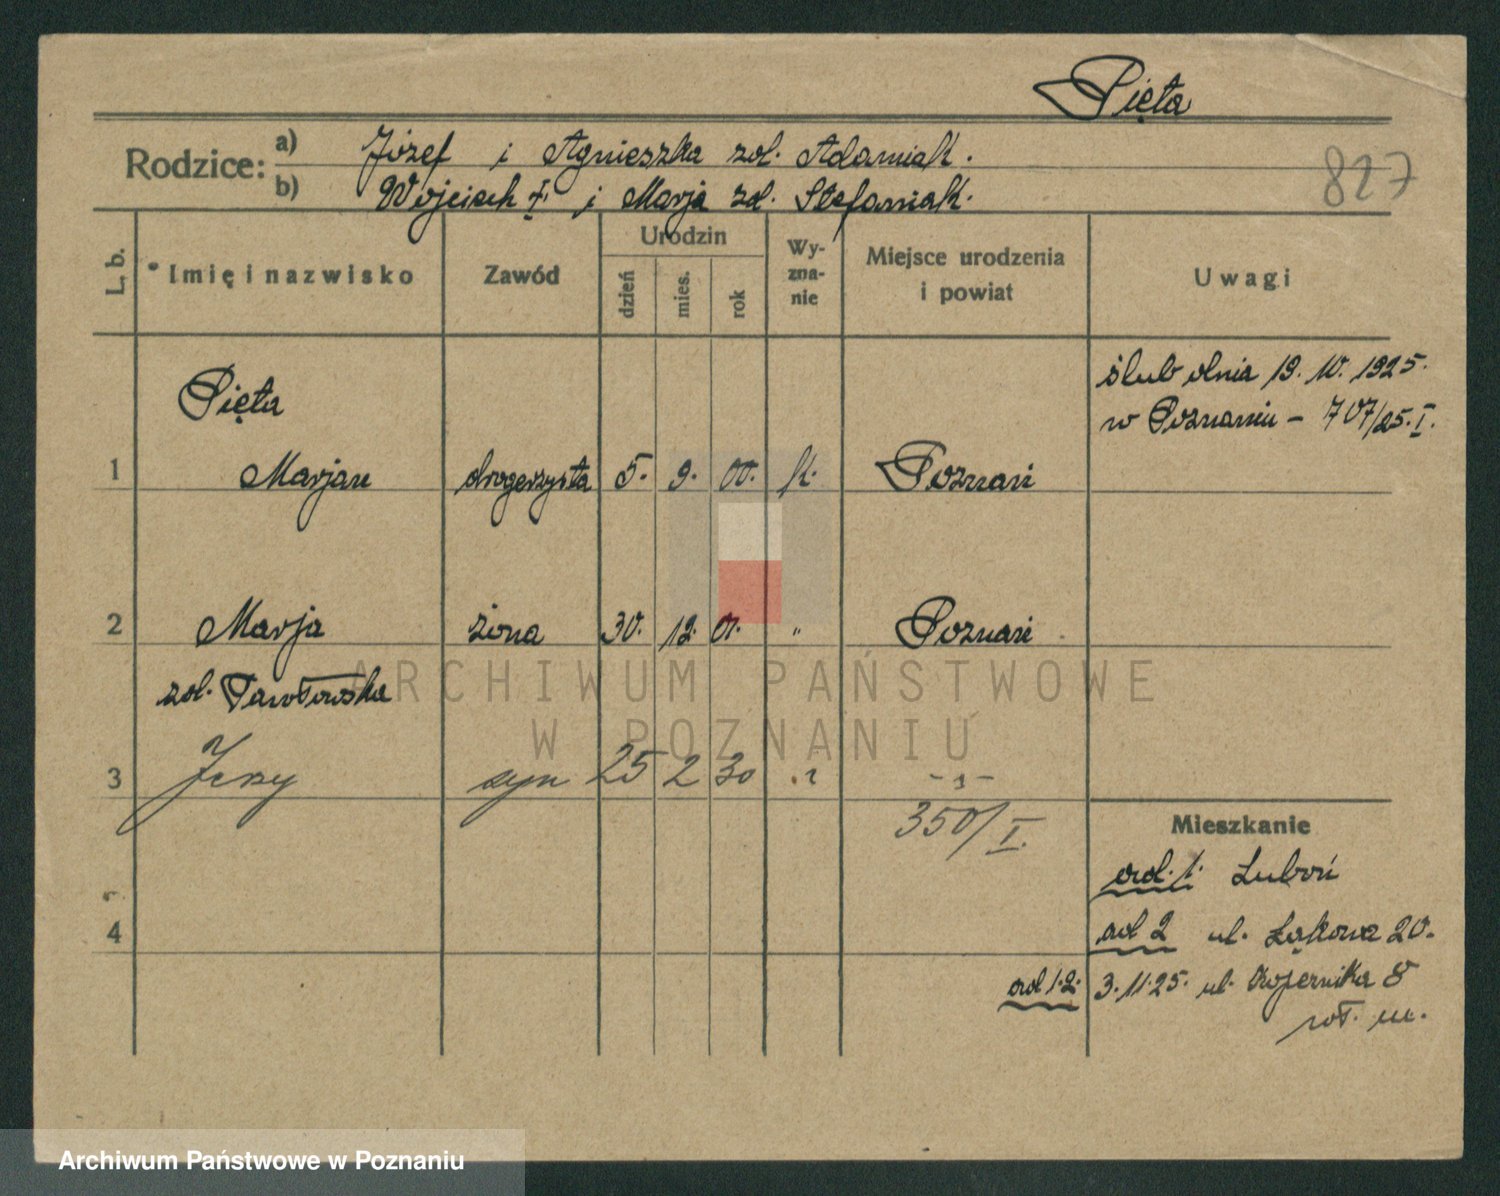 Pięta
Rodzice:
a) Józef i Agnieszka zd. Adamiak.
b) Wojciech † i Marja zd. Stefaniak.
827
L. b.
Imię i nazwisko
Zawód
Urodzin
dzień
mies.
rok
Wy-
zna-
nie
Miejsce urodzenia
i powiat
Uwagi
ślub dnia 19. 10. 1925.
w Poznaniu – 707/25. I.
Pięta
1 Marjan drogerzysta 5. 9. 00. k. Poznań
2 Marja żona 30. 12. 01. " Poznań
zd. Pawłowska
3 Jerzy syn 25 2 30
350/I.
Mieszkanie
ad. 1. Luboń
4 ad 2 ul. Łąkowa 20.
ad 1.2. 3.11.25. ul. Kopernika 8
wł. m.
ARCHIWUM PAŃSTWOWE
W POZNANIU
Archiwum Państwowe w Poznaniu